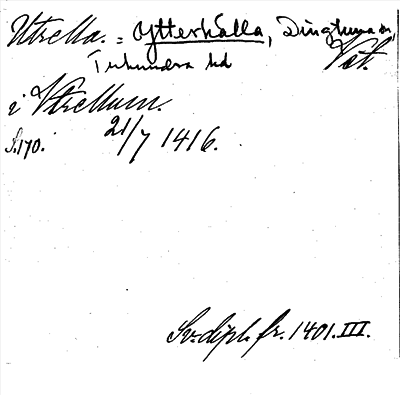 Utrella. = Ytterhälla, Dingtuna sn,
Tuhundra hd Vstm.
i Vtrellum.
S.170. 21/7 1416.
Sv. dipl. fr. 1401. III.